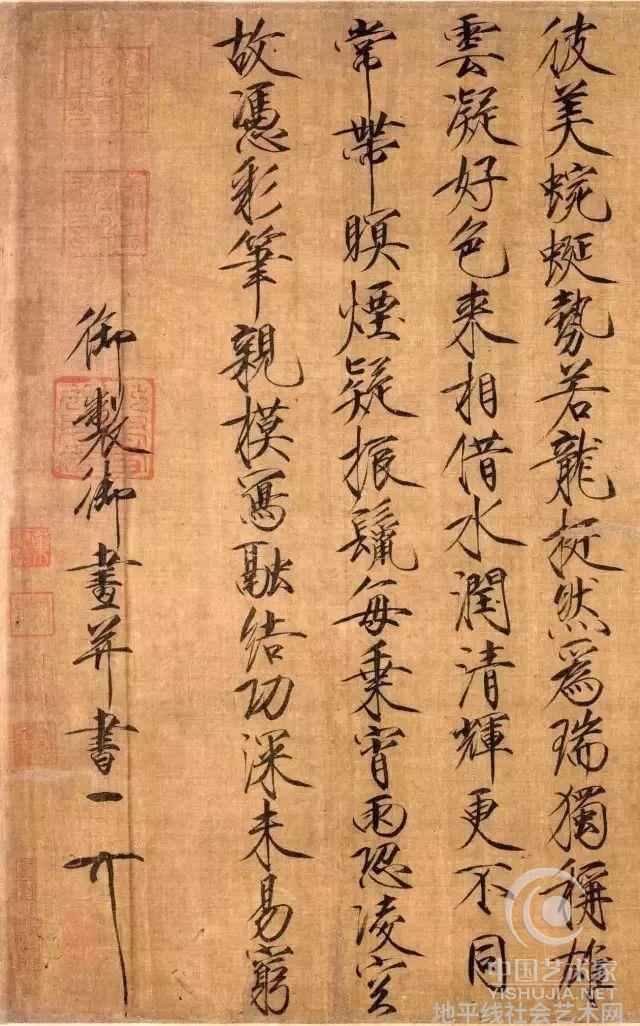 彼美蜿蜒勢若龍挺然為瑞獨稱雄
雲凝好色来相借水潤清輝更不同
常帶暝煙疑振鬣每乗宵雨恐凌空
故憑彩筆親模寫融結功深未易窮
御製御畫并書
中国艺术家
YISHUJIA.NET
地平线社会艺术网